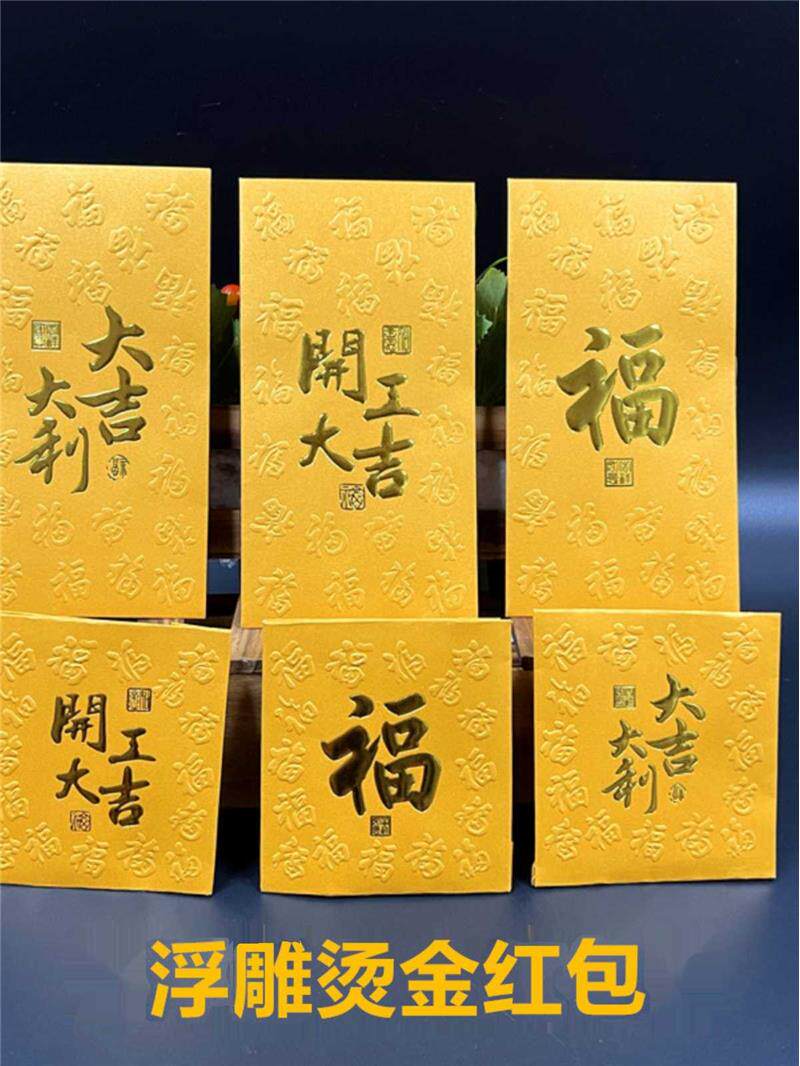 大吉
大利
開工
大吉
福
開工
大吉
福
大吉
大利
浮雕烫金红包